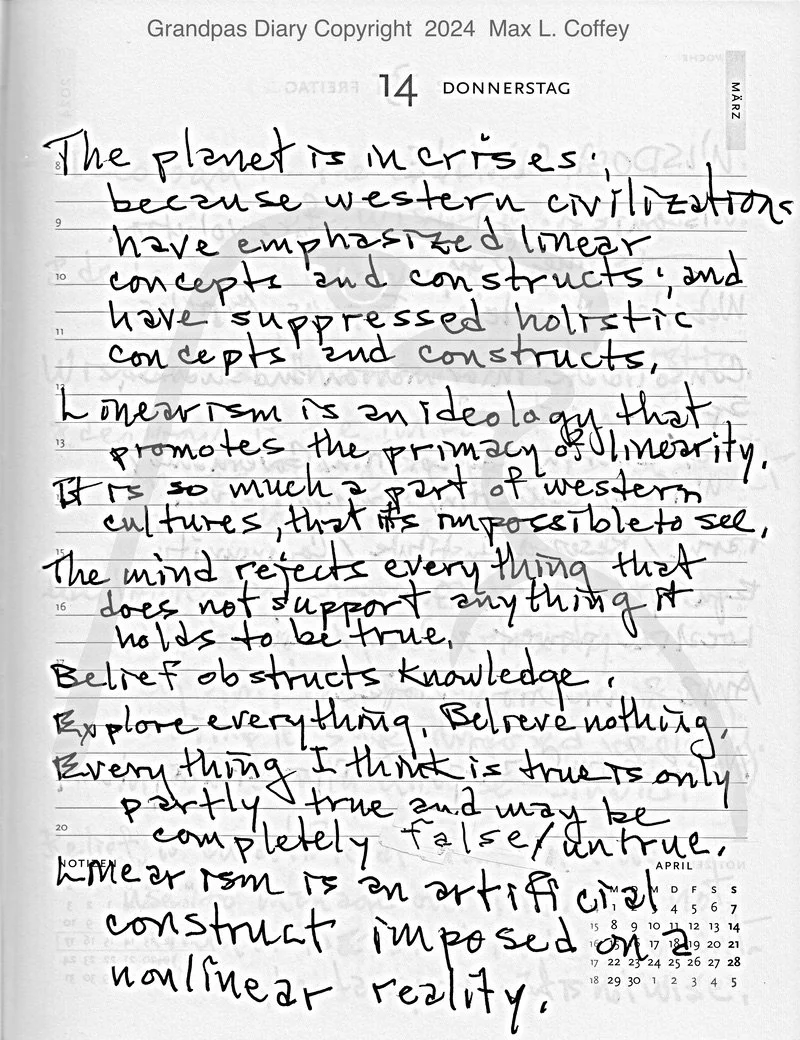 Grandpas Diary Copyright 2024 Max L. Coffey
14 DONNERSTAG
MÄRZ
The planet is in crises;
because western civilizations
have emphasized linear
concepts and constructs; and
have suppressed holistic
concepts and constructs.
Linearism is an ideology that
promotes the primacy of linearity.
It is so much a part of western
cultures, that it's impossible to see.
The mind rejects everything that
does not support anything it
holds to be true.
Belief obstructs knowledge.
Explore everything. Believe nothing.
Everything I think is true is only
partly true and may be
completely false/untrue.
Linearism is an artificial
construct imposed on a
nonlinear reality.
8
9
10
11
12
13
15
16
17
20
NOTIZEN
APRIL
M D M D F S S
1 2 3 4 5 6 7
15 8 9 10 11 12 13 14
16 15 16 17 18 19 20 21
17 22 23 24 25 26 27 28
18 29 30 1 2 3 4 5